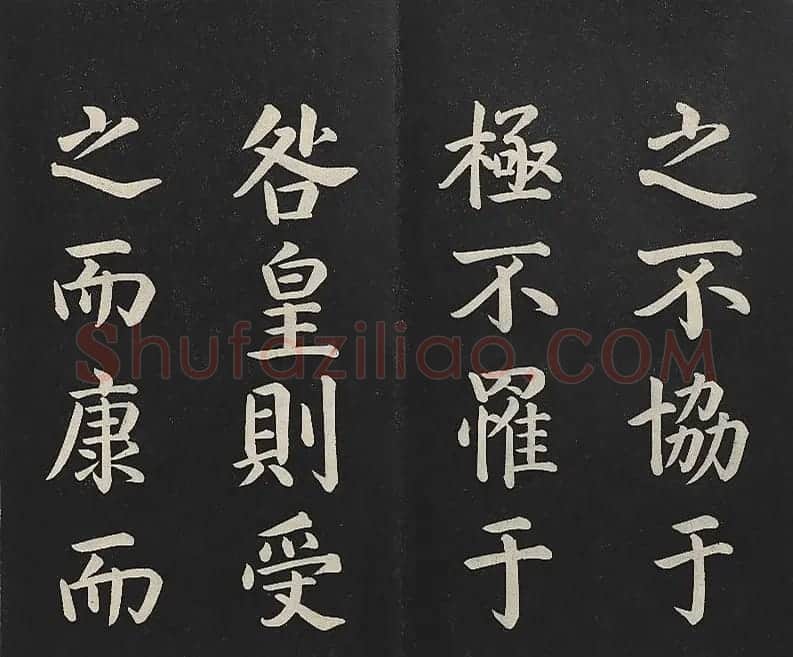 之不協于
極不罹于
咎皇則受
之而康而
Shufaziliao.COM